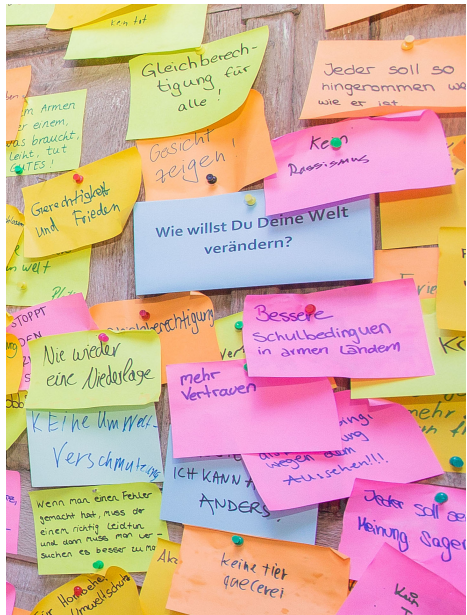 kein tot
Gleichberech-
tigung für
alle!
Jeder soll so
hingenommen we
wie er ist
m Armen
er einem,
was braucht,
leiht, tut
GUTES!
Gesicht
zeigen!
Kein
Rassismus
Gerechtigkeit
und Frieden
Wie willst Du Deine Welt
verändern?
welt
STOPPT
DEN
Gleichberechtigung
Bessere
Schulbedinguen
in armen Ländern
Nie wieder
eine Niederlage
mehr
Vertrauen
mehr
KEine UmWelt-
Verschmutzung
wegen dem
Aussehen!!!
ICH KANN
ANDERS!
Wenn man einen Fehler
gemacht hat, muss der
einem richtig leidtun
und dann muss man ver-
suchen es besser zu ma
Jeder soll se
Meinung Sagen
keine tier
quelerei
Umweltschutz